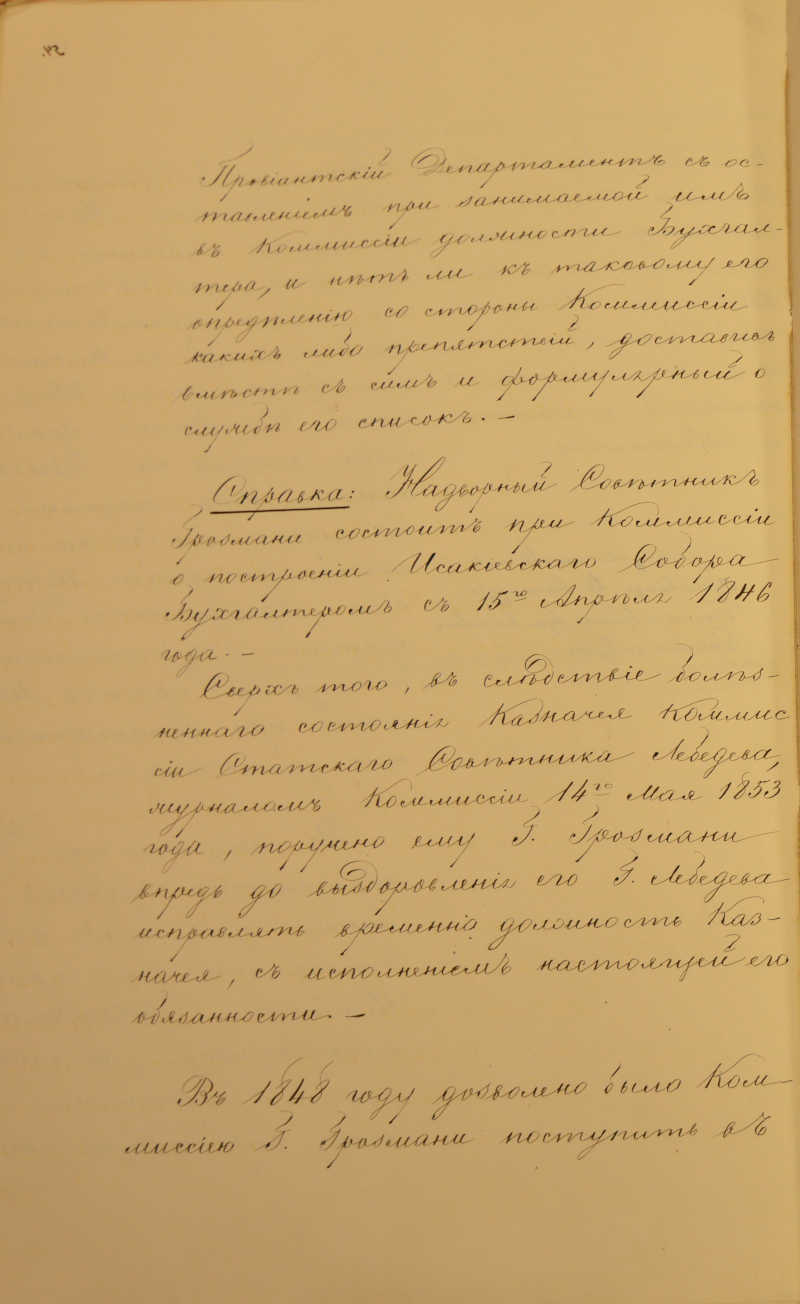 Провіантскій Департаментъ съ ос-
тавленіемъ при занимаемой имъ
въ Коммиссіи должности Бухгал-
тера, и нѣтъ ли къ таковому его
опредѣленію со стороны Коммиссіи
какихъ либо препятствій, доставивъ
вмѣстѣ съ симъ и формулярный о
службѣ его списокъ. —
Справка: Надворный Совѣтникъ
Грозмани состоитъ при Коммиссіи
о построеніи Исакіевскаго Собора
Бухгалтеромъ съ 15го Апрѣля 1846
года. —
Сверхъ того, въ слѣдствіе болѣз-
неннаго состоянія Казначея Коммис
сіи Статскаго Совѣтника Лебедева,
журналомъ Коммиссіи 14го Мая 1853
года, поручено ему Г. Грозмани
впредь до выздоровленія его Г. Лебедева
исправлять временно должность Каз-
начея, съ исполненіемъ настоящей его
обязанности. —
Въ 1848 году дозволено было Ком-
миссіею Г. Грозмани поступить въ